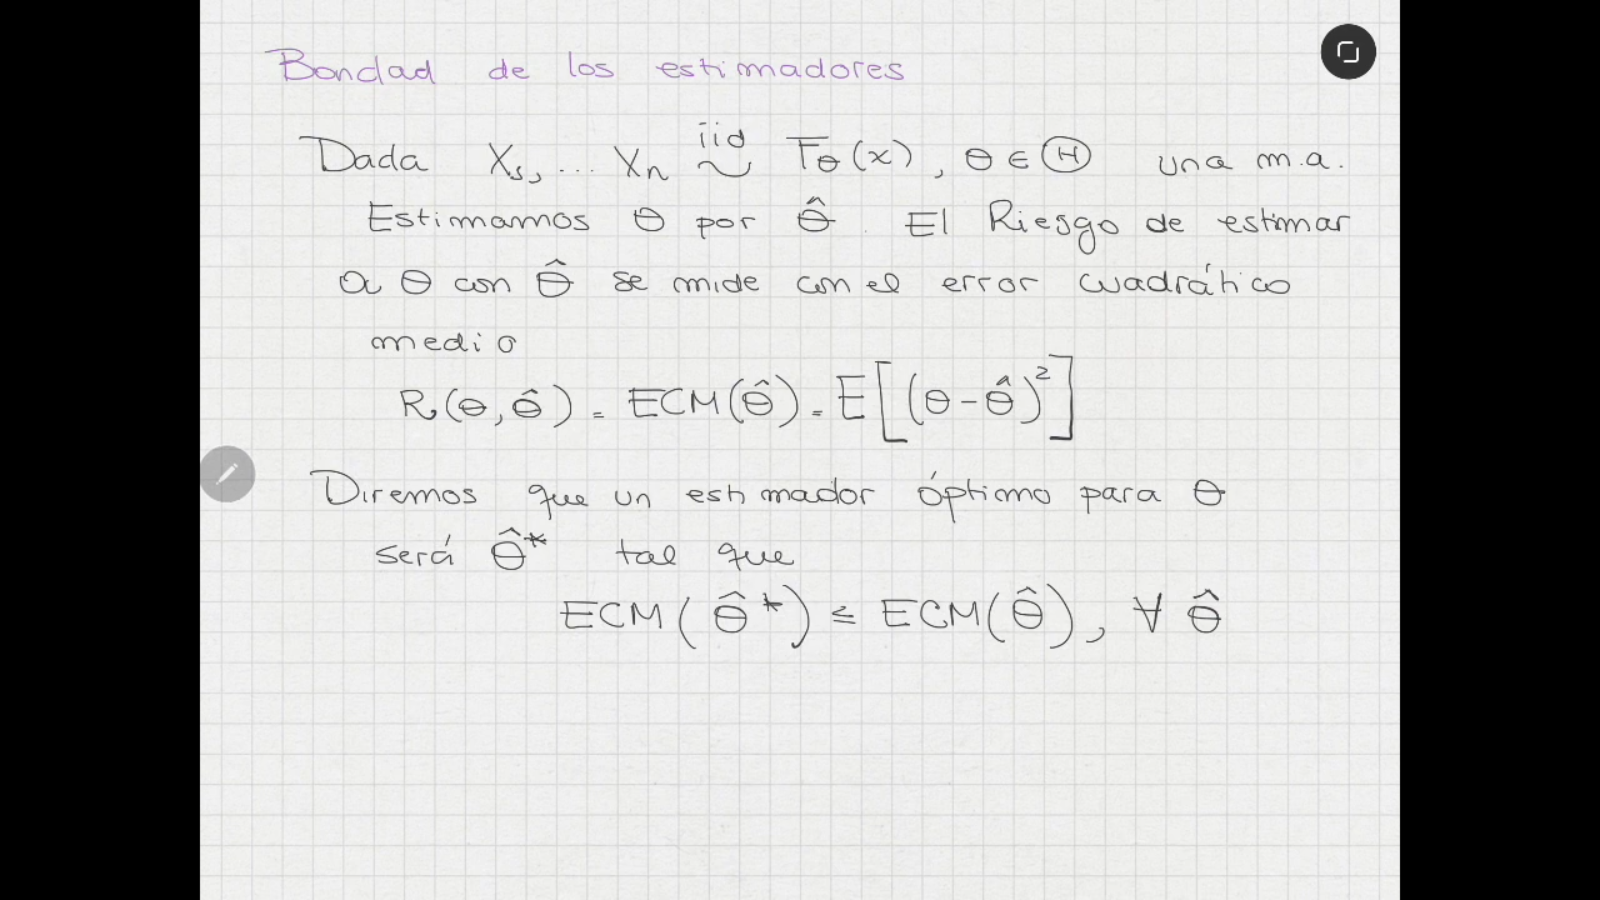 Bondad de los estimadores
Dada X₁, ... Xn iid ~ Fθ(x), θ ∈ Θ una m.a.
Estimamos θ por θ̂. El Riesgo de estimar
a θ con θ̂ se mide con el error cuadrático
medio
R(θ, θ̂) = ECM(θ̂) = E[(θ - θ̂)²]
Diremos que un estimador óptimo para θ
será θ̂* tal que
ECM(θ̂*) ≤ ECM(θ̂), ∀ θ̂